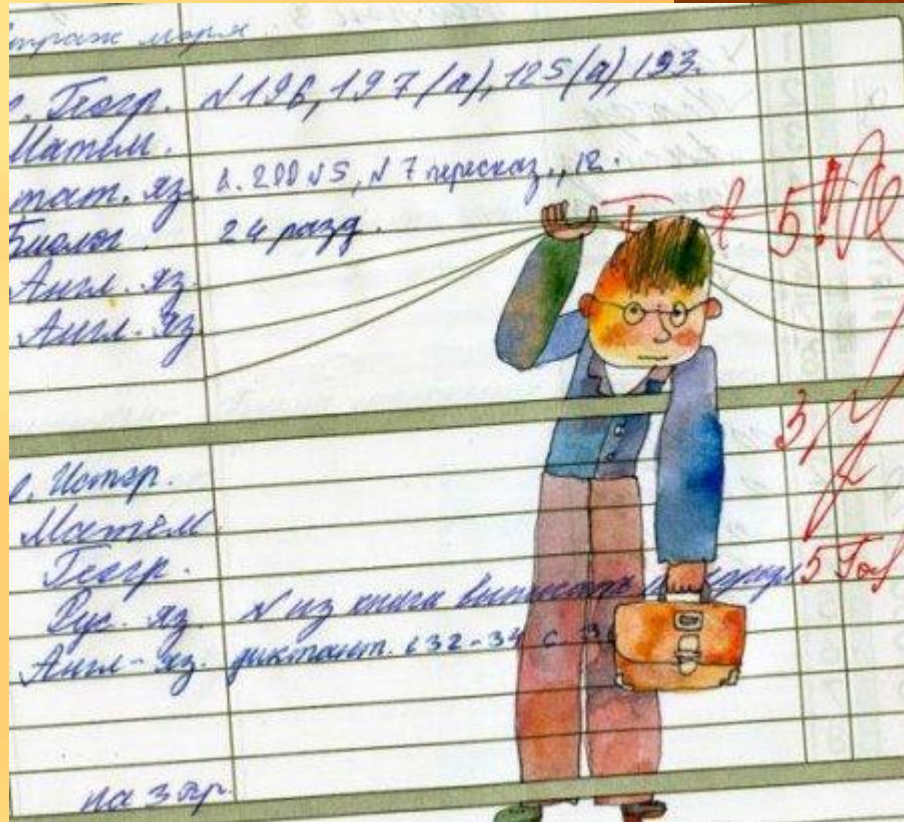 Геогр. № 196, 197(а), 125(а), 193.
Матем.
тат. яз. с. 200 № 5, № 7 пересказ., 12.
Биолог. 24 разд. 5!
Англ. яз.
Англ. яз
3,
Истор.
Матем
Геогр.
Рус. яз. № из книги 5
Англ-яз. диктант. с 32-34 с
на 3 тр.